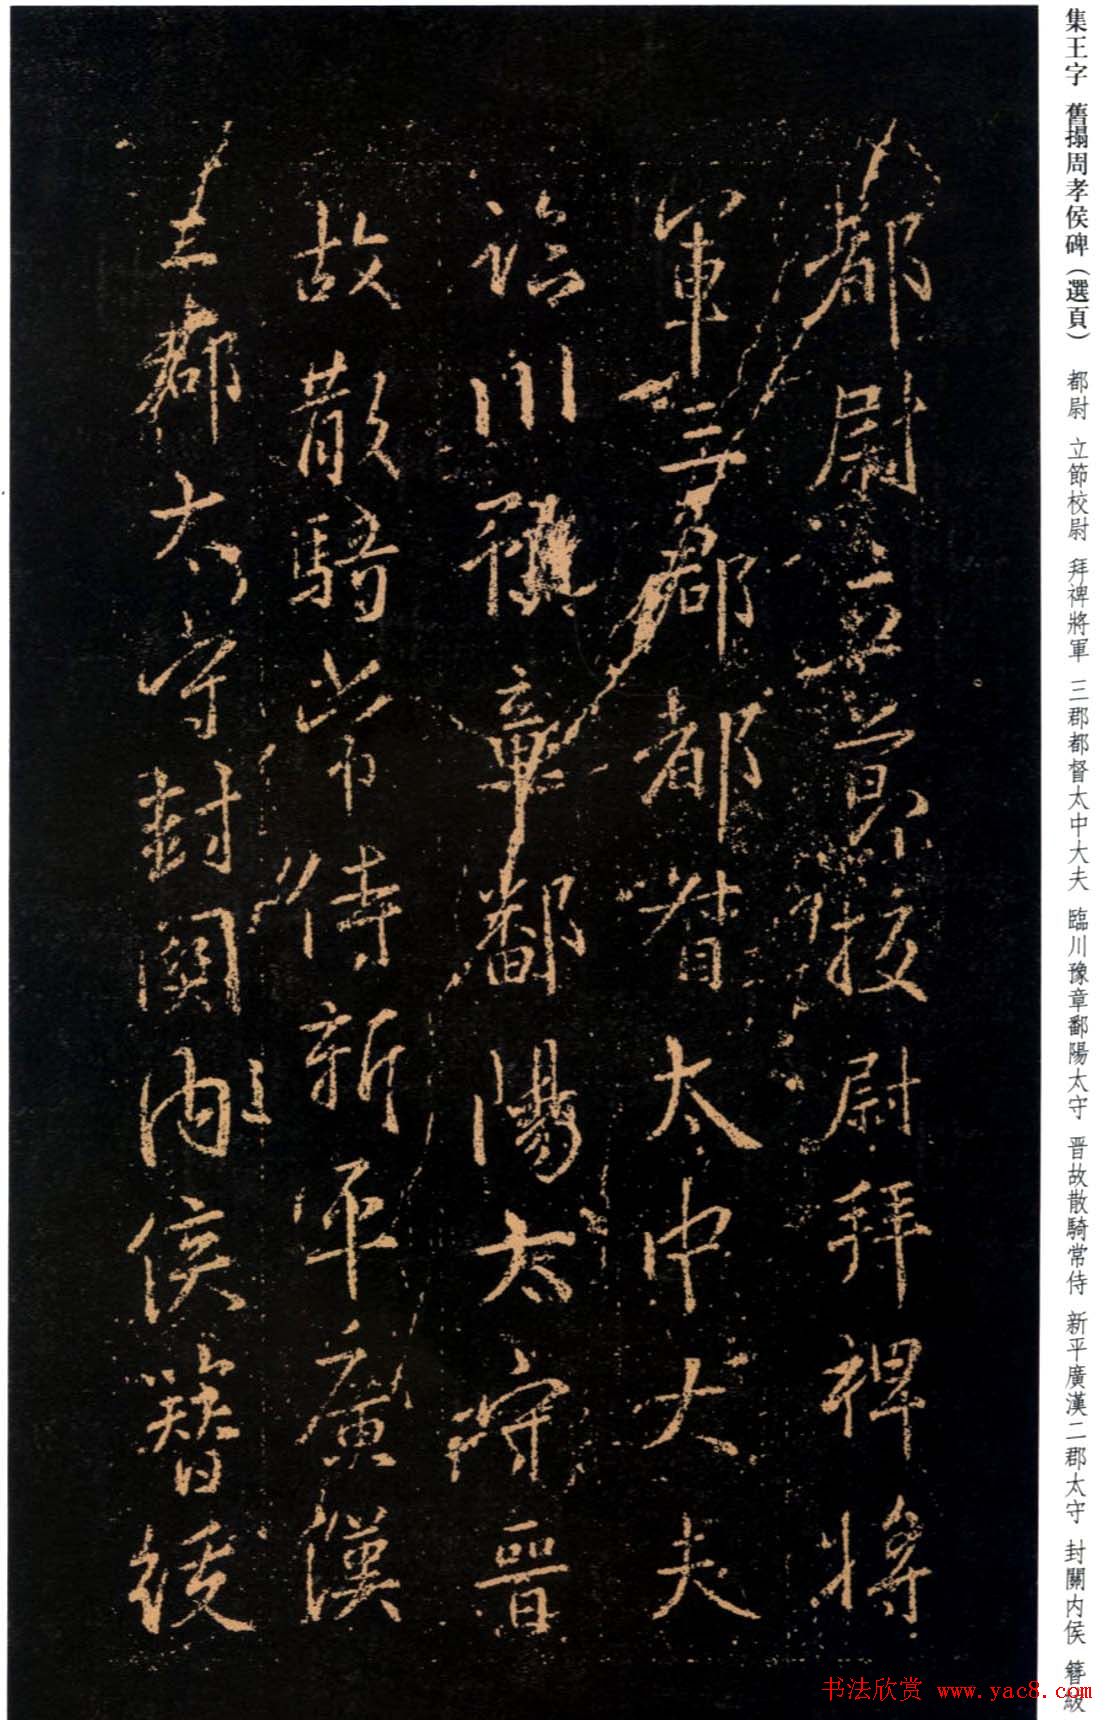 集王字 舊搨周孝侯碑（選頁） 都尉 立節校尉 拜裨將軍 三郡都督太中大夫 臨川豫章鄱陽太守 晋故散騎常侍 新平廣漢二郡太守 封關内侯 簪紱
都尉立節校尉拜裨將
軍三郡都督太中大夫
臨川豫章鄱陽太守晉
故散騎常侍新平廣漢
二郡太守封關内侯簪紱
书法欣赏 www.yac8.com